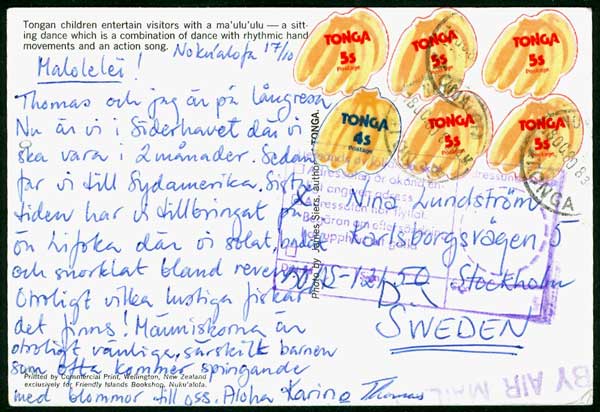 Tongan children entertain visitors with a ma'ulu'ulu — a sitt-
ing dance which is a combination of dance with rhythmic hand
movements and an action song.
Noku'alofa 17/10
Malolelei!
Thomas och jag är på långresa
Nu är vi i Söderhavet där vi
ska vara i 2 månader. Sedan
far vi till Sydamerika. Sista
tiden har vi tillbringat på
ön Lifoka där vi solat, badat
och snorklat bland reven.
Otroligt vilka lustiga fiskar
det finns! Människorna är
otroligt vänliga, särskilt barnen
som ofta kommer springande
med blommor till oss. Aloha Karina Thomas
Printed by Commercial Print, Wellington, New Zealand
exclusively for Friendly Islands Bookshop, Nuku'alofa.
Photo by James Siers, TONGA.
TONGA
5s
Postage
TONGA
5s
Postage
TONGA
5s
Postage
TONGA
4s
Postage
TONGA
5s
Postage
TONGA
5s
Postage
TONGA
Nina Lundström
Karlsborgsvägen 5
S-121 50 Stockholm
SWEDEN
BY AIR MAIL